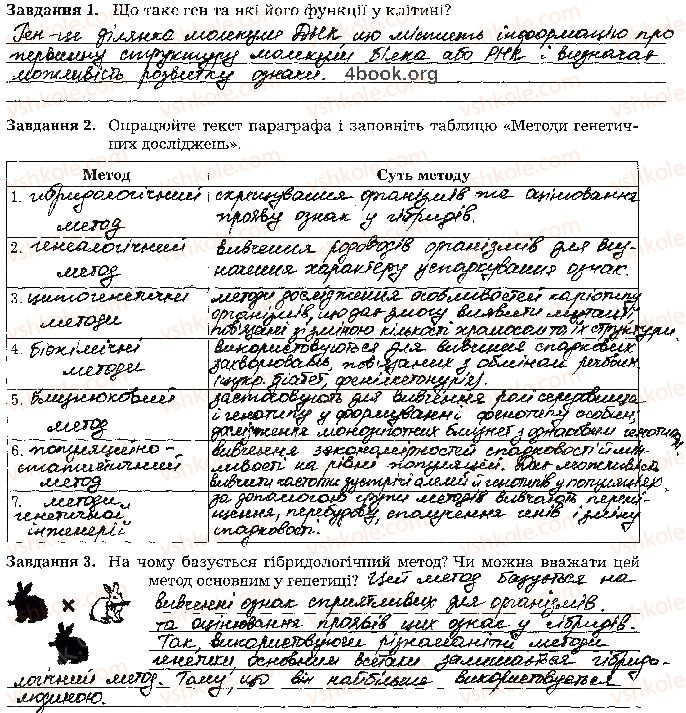 Завдання 1. Що таке ген та які його функції у клітині?
Ген - це ділянка молекули ДНК що містить інформацію про
первинну структуру молекули білка або РНК і визначає
можливість розвитку ознаки. 4book.org
Завдання 2. Опрацюйте текст параграфа і заповніть таблицю «Методи генетич-
них досліджень».
Метод Суть методу
1. гібридологічний схрещування організмів та оцінювання
метод прояву ознак у гібридів.
2. генеалогічний вивчення родоводів організмів для виз-
метод начення характеру успадкування ознак.
3. цитогенетичні методи дослідження особливостей каріотипу
методи організмів, що дає змогу виявити мутації,
пов'язані зі зміною кількості хромосом та їх структури
4. Біохімічні використовуються для вивчення спадкових
методи захворювань, пов'язаних з обміном речовин
(цукр. діабет, фенілкетонурія).
5. Близнюковий застосовують для вивчення ролі середовища
метод і генотипу у формуванні фенотипу особин,
дослідження монозиготних близнят з однаковим генотипом
6. популяційно- вивчення закономірностей спадковості й мін-
статистичний ливості на рівні популяцій. Дає можливість
метод вивчити частоти зустрічі алелей й генотипів у популяціях.
7. методи за допомогою групи методів вивчають перемі-
генетичної щення, перебудову, сполучення генів і зміну
інженерії спадковості.
Завдання 3. На чому базується гібридологічний метод? Чи можна вважати цей
метод основним у генетиці? Цей метод базується на
вивченні ознак сприятливих для організмів.
та оцінювання проявів цих ознак у гібридів.
Так, використовуючи різноманітні методи
генетики основним всетаки залишається гібридо-
логічний метод. Тому, що він найбільше використовується
людиною.